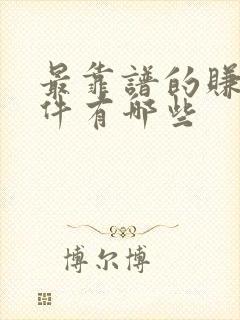 最靠譜的賺
件有哪些
博尔博